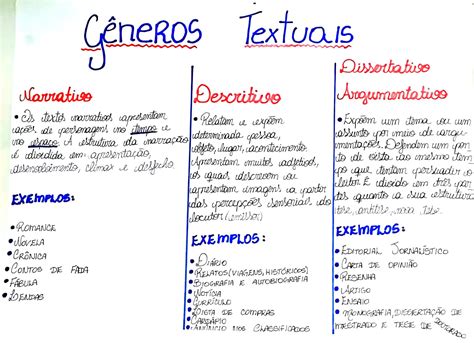 Gêneros Textuais
Narrativo
• Os textos narrativos apresentam
ações de personagens no tempo e
no espaço. A estrutura da narração
é dividida em: apresentação,
desenvolvimento, clímax e desfecho.
EXEMPLOS:
• ROMANCE
• NOVELA
• CRÔNICA
• CONTOS DE FADA
• FÁBULA
• LENDAS
Descritivo
• Relatam e expõem
determinada pessoa,
objeto, lugar, acontecimento.
Apresentam muitos adjetivos,
os quais descrevem ou
apresentam imagens a partir
das percepções sensoriais do
locutor (emissor)
EXEMPLOS:
• DIÁRIO
• RELATOS (VIAGENS, HISTÓRICOS)
• BIOGRAFIA E AUTOBIOGRAFIA
• NOTÍCIA
• CURRÍCULO
• LISTA DE COMPRAS
• CARDÁPIO
• ANÚNCIO NOS CLASSIFICADOS
Dissertativo
Argumentativo
• Expõem um tema ou um
assunto por meio de argu-
mentações. Defendem um pon
to de vista ao mesmo tem
po que tentam persuadir o
leitor. É dividido em três par
tes quanto a sua estrutura:
tese, antítese, nova tese.
EXEMPLOS:
• EDITORIAL JORNALÍSTICO
• CARTA DE OPINIÃO
• RESENHA
• ARTIGO
• ENSAIO
• MONOGRAFIA, DISSERTAÇÃO DE
MESTRADO E TESE DE DOUTORADO